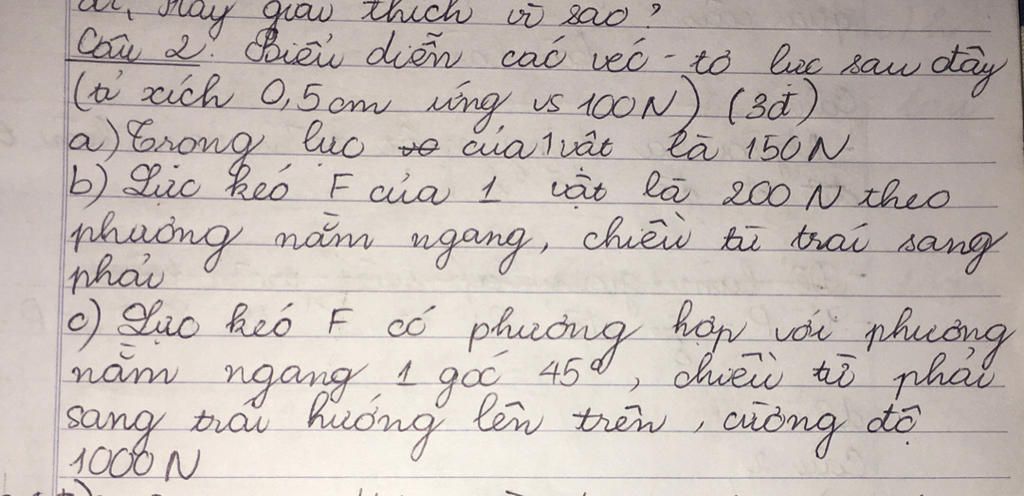 hãy giải thích vì sao?
Câu 2. Biểu diễn các véc-tơ lực sau đây
(tỉ xích 0,5cm ứng vs 100N) (3đ)
a) Trọng lực của 1 vật là 150N
b) Lực kéo F của 1 vật là 200 N theo
phương nằm ngang, chiều từ trái sang
phải
c) Lực kéo F có phương hợp với phương
nằm ngang 1 góc 45°, chiều từ phải
sang trái hướng lên trên, cường độ
1000N